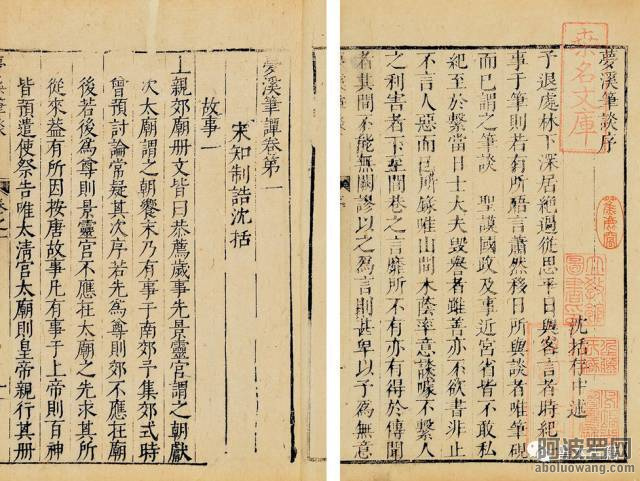 桑名文庫
夢溪筆談序
沈括存中述
予退處林下深居絶過從思平日與客言者時紀
事于筆則若有所晤言蕭然移日所與談者唯筆硯
而已謂之筆談 聖謨國政及事近宮省皆不敢私
紀至於繫當日士大夫毀譽者雖善亦不欲書非止
不言人惡而已所錄唯山間木蔭率意談噱不繫人
之利害者下至閭巷之言靡所不有亦有得於傳聞
者其間不能無闕謬以之為言則甚卑以予為無意
夢溪筆譚卷第一
宋知制誥沈括
故事一
上親郊廟册文皆曰恭薦歲事先景靈宮謂之朝獻
次太廟謂之朝饗末乃有事于南郊予集郊式時
曾預討論常疑其次序若先為尊則郊不應在廟
後若後為尊則景靈宮不應在太廟之先求其所
從來蓋有所因按唐故事凡有事于上帝則百神
皆預遣使祭告唯太清宮太廟則皇帝親行其册
阿波罗网
aboluowang.com